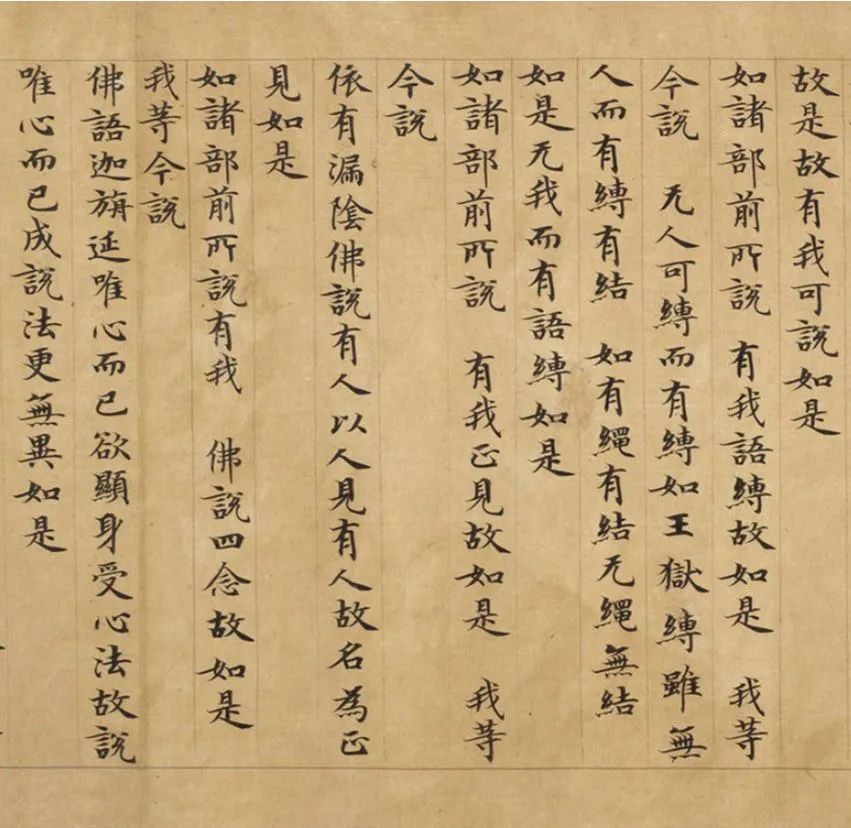 故是故有我可說如是
如諸部前所說　有我語縛故如是　我等
今說　无人可縛而有縛如王獄縛雖無
人而有縛有結　如有繩有結无繩無結
如是无我而有語縛如是
如諸部前所說　有我正見故如是　我等
今說
依有漏陰佛說有人以人見有人故名為正
見如是
如諸部前所說有我　佛說四念故如是
我等今說
佛語迦旃延唯心而已欲顯身受心法故說
唯心而已成說法更無異如是